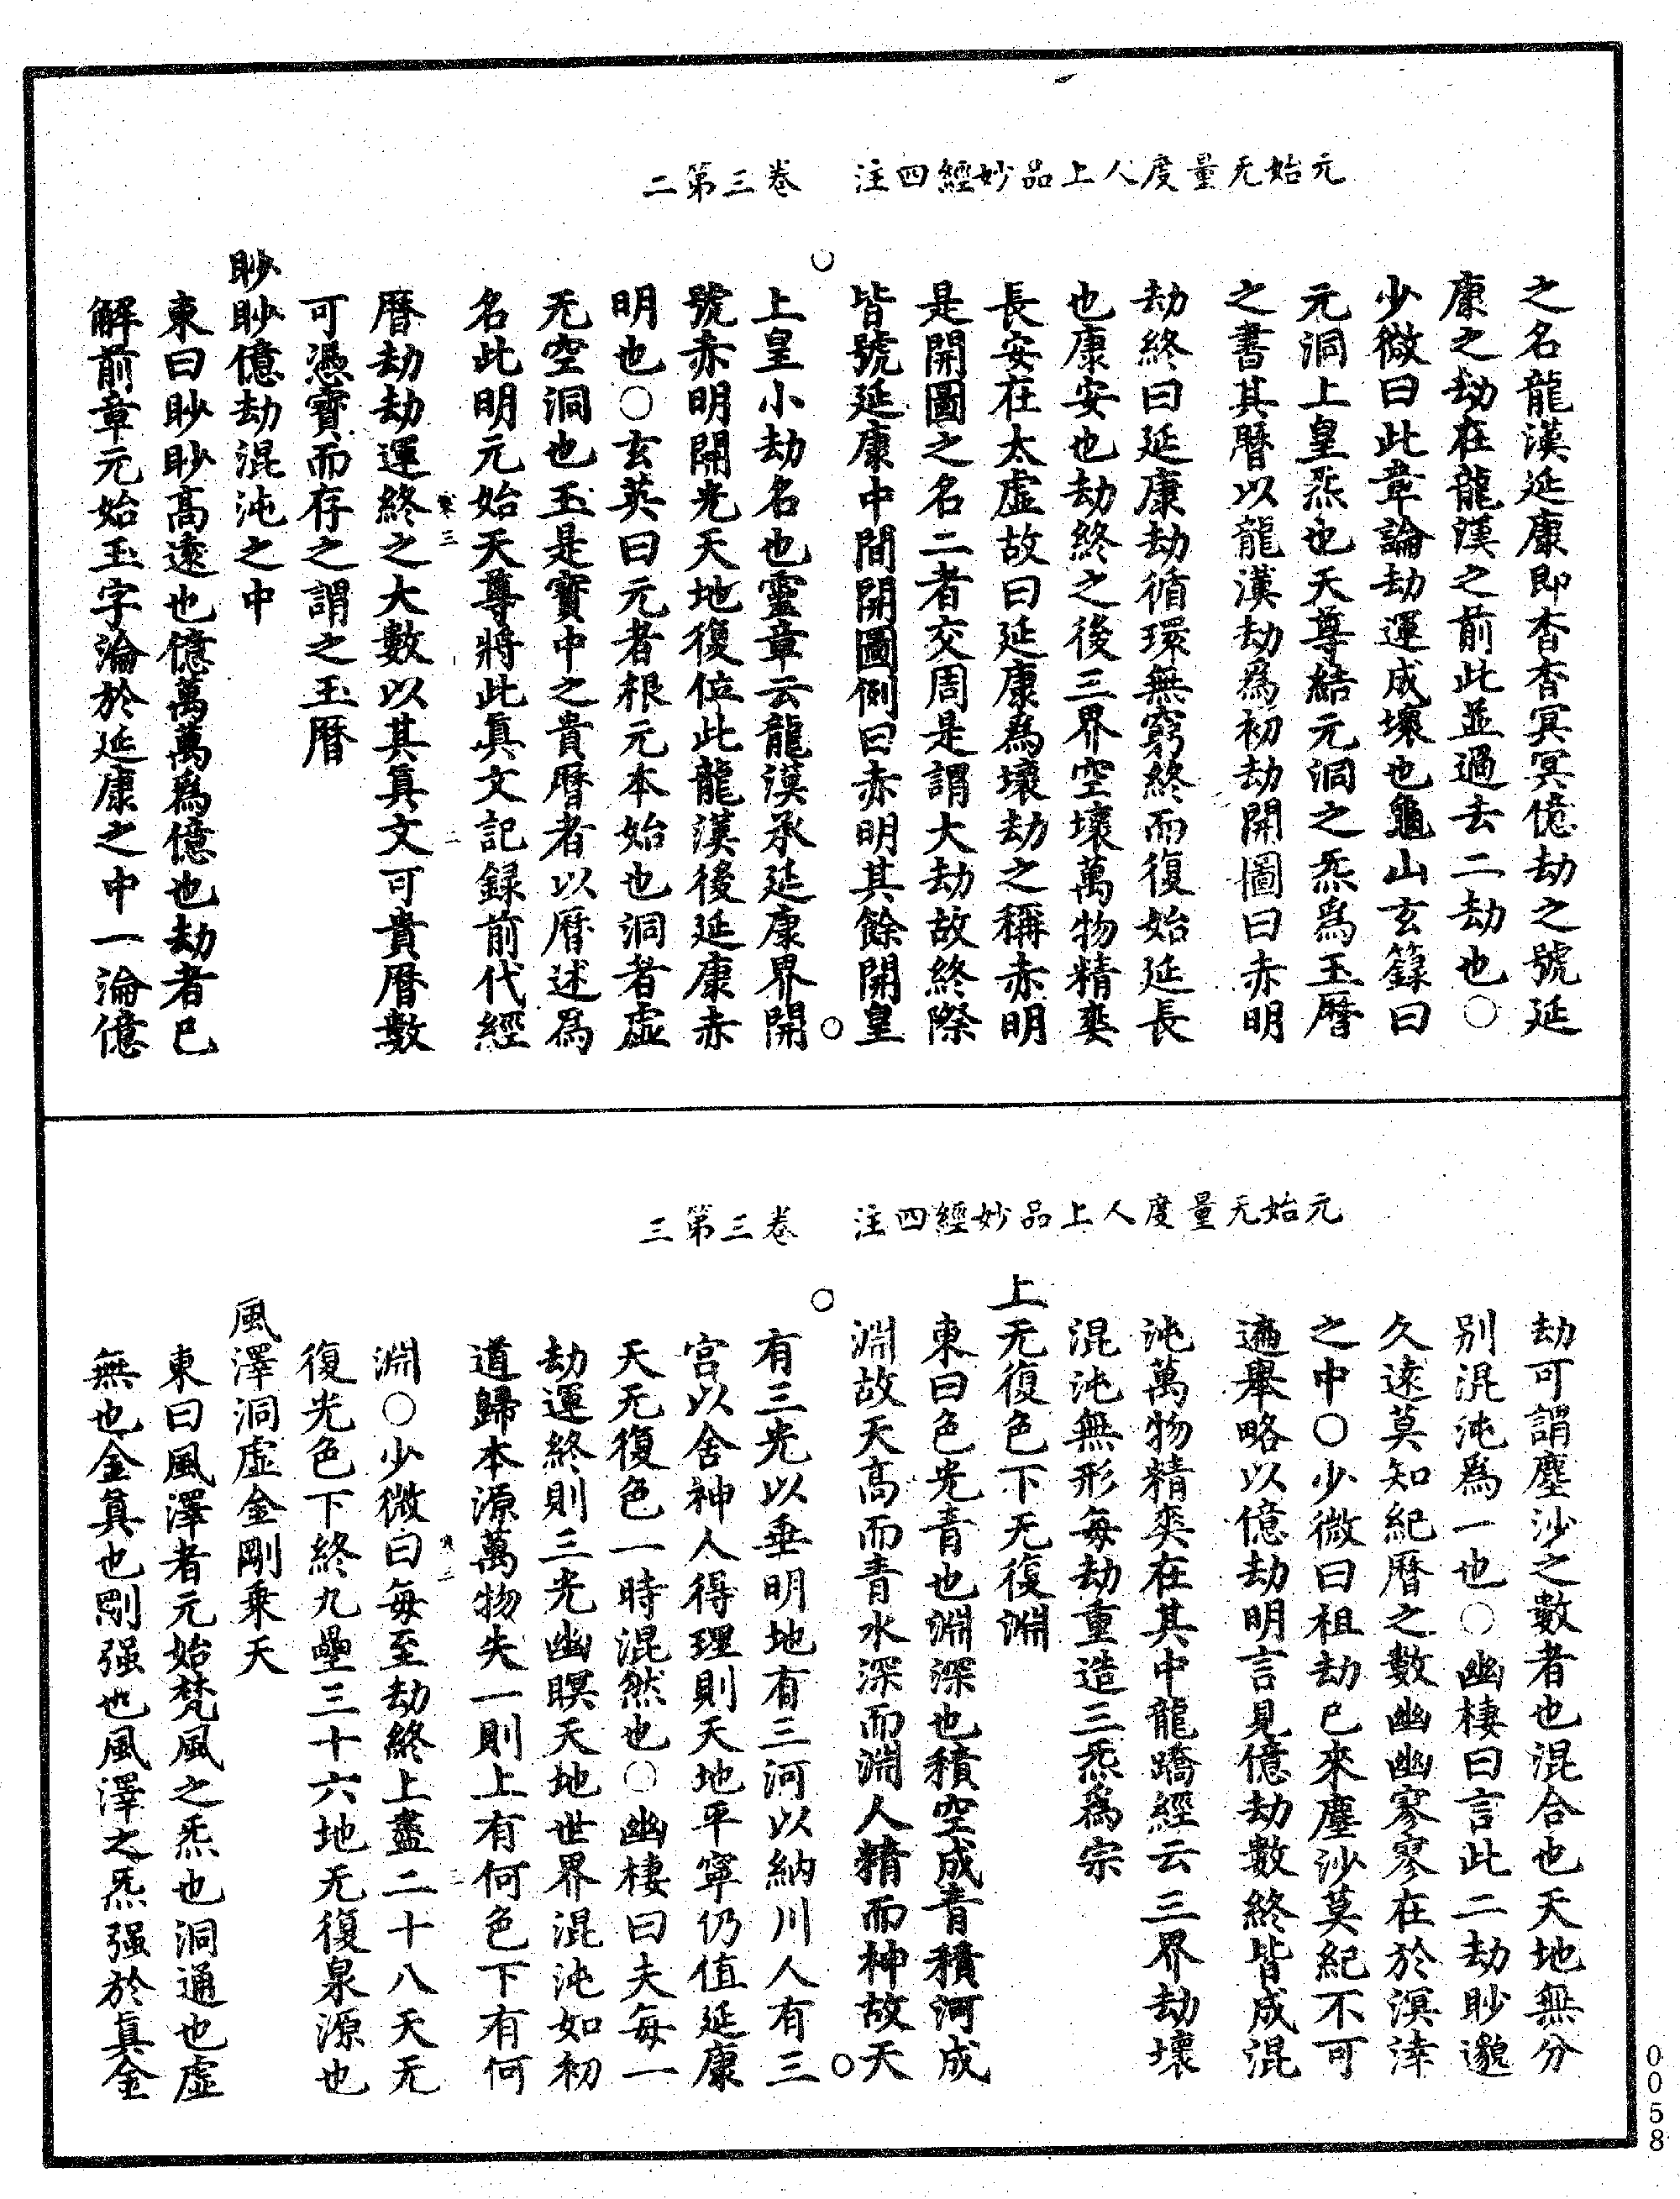 元始无量度人上品妙經四注　卷三第二
之名龍漢延康即杳杳冥冥億劫之號延
康之劫在龍漢之前此並過去二劫也○
少微曰此章論劫運成壞也龜山玄籙曰
元洞上皇炁也天尊結元洞之炁爲玉曆
之書其曆以龍漢劫爲初劫開圖曰赤明
劫終曰延康劫循環無窮終而復始延長
也康安也劫終之後三界空壞萬物精爽
長安在太虛故曰延康爲壞劫之稱赤明
是開圖之名二者交周是謂大劫故終際
皆號延康中間開圖例曰赤明其餘開皇
上皇小劫名也靈章云龍漢承延康界開
號赤明開光天地復位此龍漢後延康赤
明也○玄英曰元者根元本始也洞者虛
无空洞也玉是寶中之貴曆者以曆述爲
名此明元始天尊將此真文記録前代經
曆劫劫運終之大數以其真文可貴曆數
可憑寶而存之謂之玉曆
眇眇億劫混沌之中
東曰眇眇高遠也億萬萬爲億也劫者已
解前章元始玉字淪於延康之中一淪億
元始无量度人上品妙經四注　卷三第三
劫可謂塵沙之數者也混合也天地無分
别混沌爲一也○幽棲曰言此二劫眇邈
久遠莫知紀曆之數幽幽寥寥在於溟涬
之中○少微曰祖劫已來塵沙莫紀不可
遍舉略以億劫明言見億劫數終皆成混
沌萬物精爽在其中龍蹻經云三界劫壞
混沌無形每劫重造三炁爲宗
上无復色下无復淵
東曰色光青也淵深也積空成青積河成
淵故天高而青水深而淵人精而神故天
有三光以垂明地有三河以納川人有三
宮以舍神人得理則天地平寧仍值延康
天无復色一時混然也○幽棲曰夫每一
劫運終則三光幽瞑天地世界混沌如初
道歸本源萬物失一則上有何色下有何
淵○少微曰每至劫終上盡二十八天无
復光色下終九壘三十六地无復泉源也
風澤洞虛金剛乘天
東曰風澤者元始梵風之炁也洞通也虛
無也金真也剛强也風澤之炁强於真金
寒三
二
寒三
三
0058